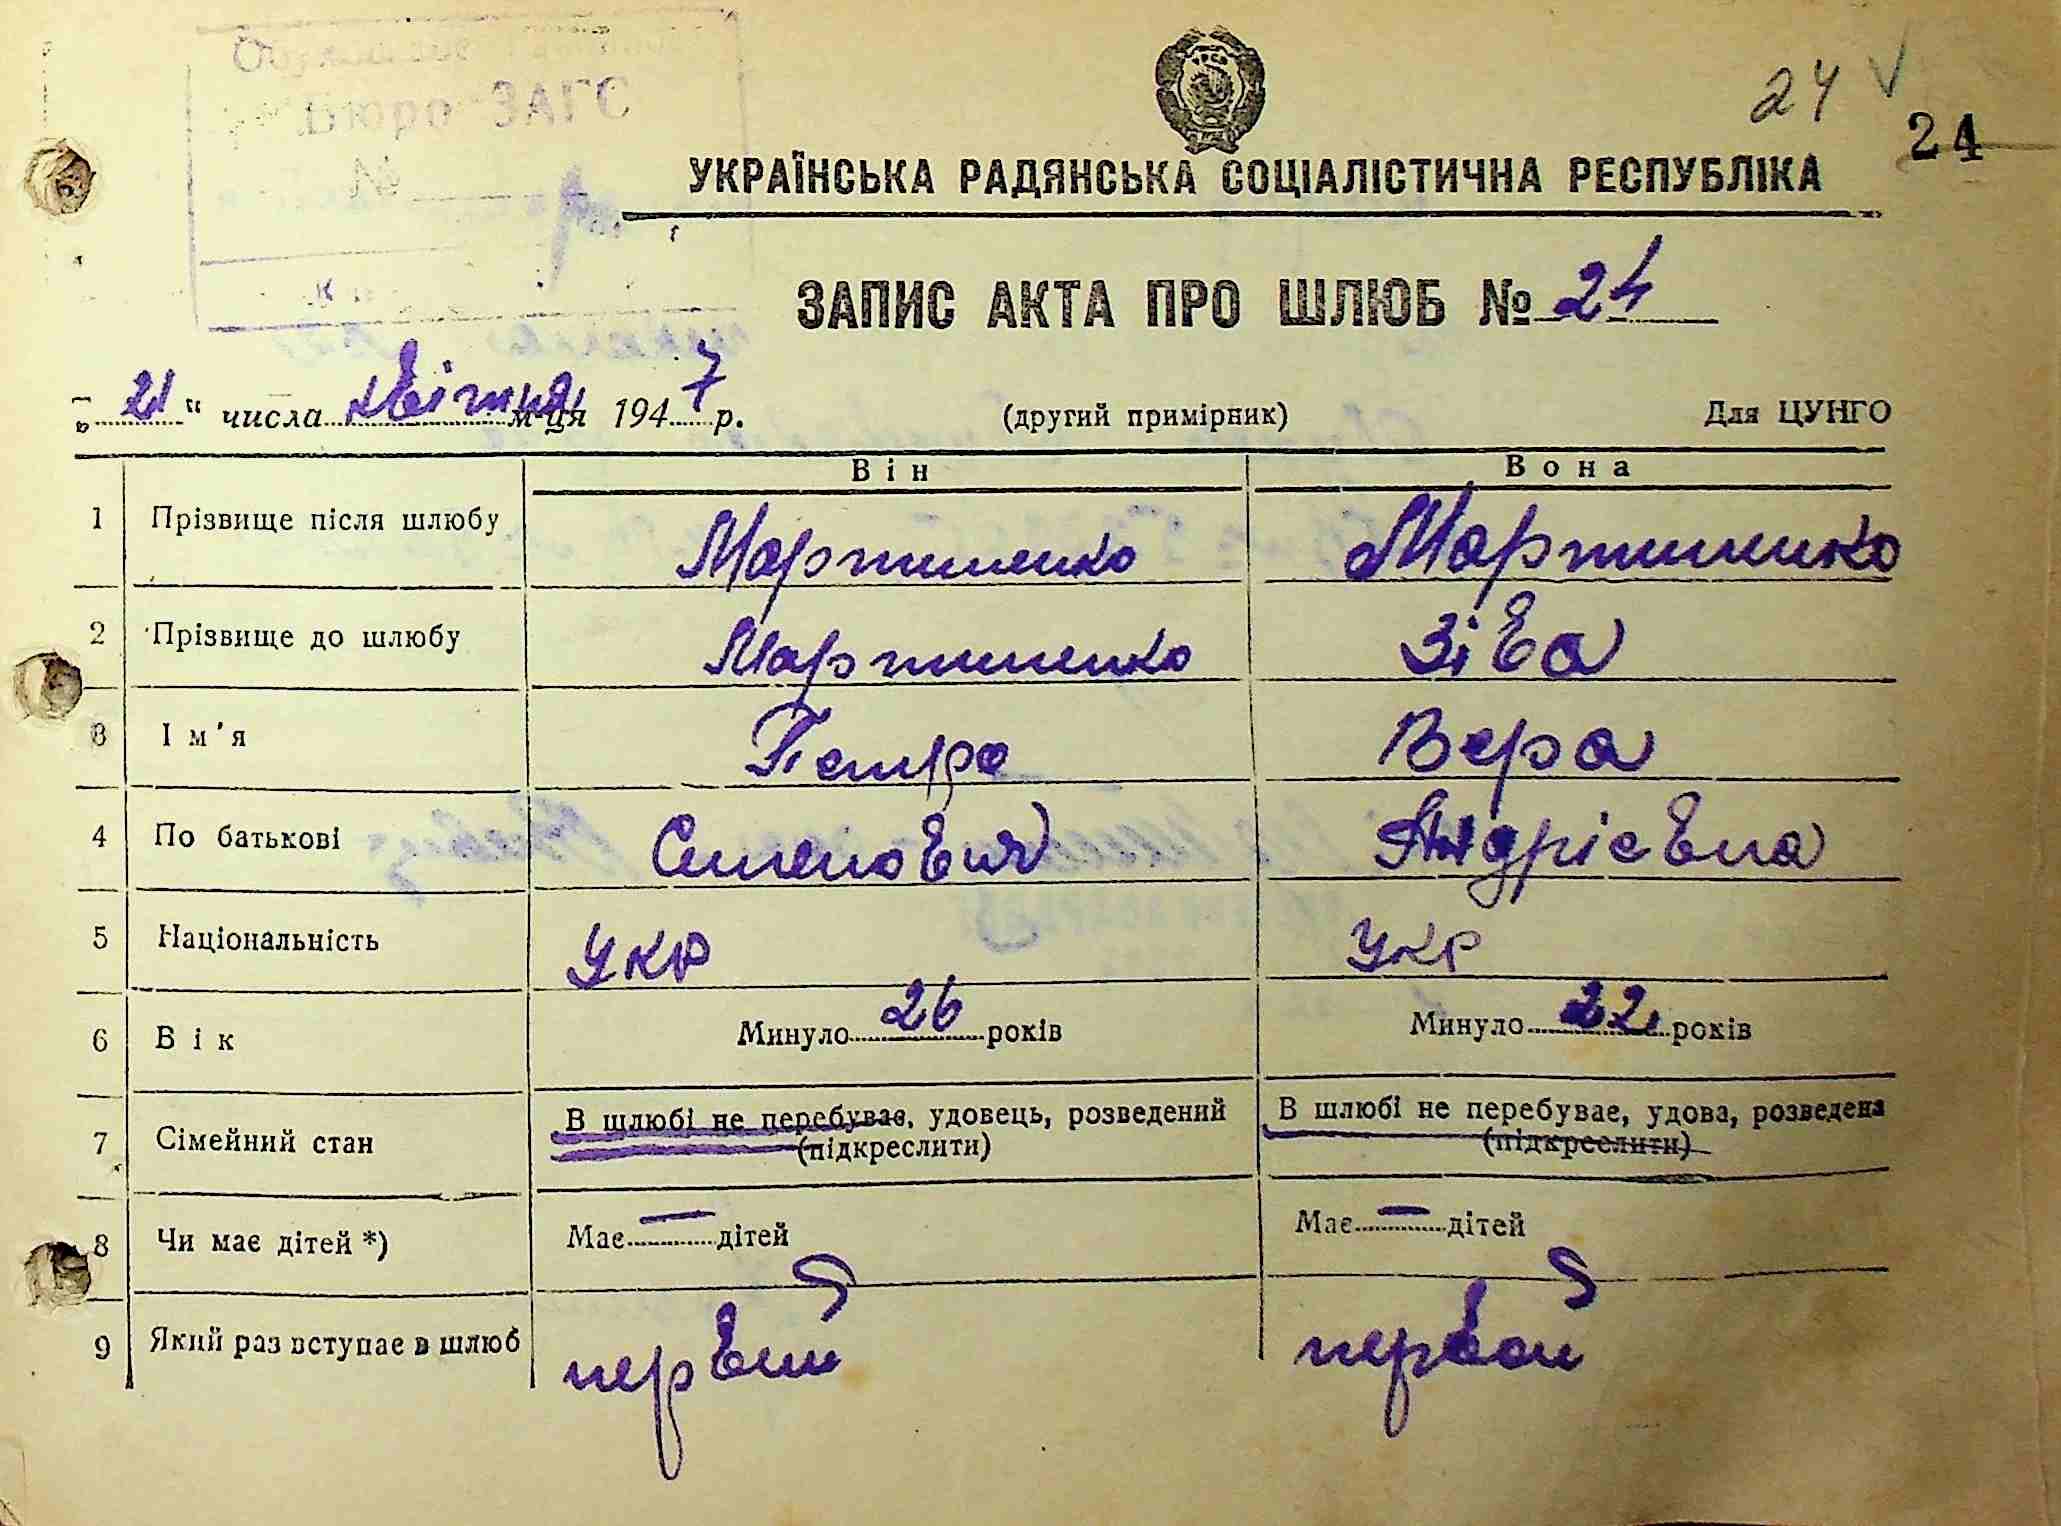 Бюро ЗАГС
№
24
24
УКРАЇНСЬКА РАДЯНСЬКА СОЦІАЛІСТИЧНА РЕСПУБЛІКА
ЗАПИС АКТА ПРО ШЛЮБ № 24
„21" числа квітня м-ця 1947 р. (другий примірник) Для ЦУНГО
Він Вона
1 Прізвище після шлюбу Мартиненко Мартиненко
2 Прізвище до шлюбу Мартиненко Зіва
3 Ім'я Петро Вера
4 По батькові Семенович Андрієвна
5 Національність УКР УКР
6 Вік Минуло 26 років Минуло 22 років
7 Сімейний стан В шлюбі не перебуває, удовець, розведений (підкреслити) В шлюбі не перебуває, удова, розведена (підкреслити)
8 Чи має дітей *) Має — дітей Має — дітей
9 Який раз вступає в шлюб первий первой